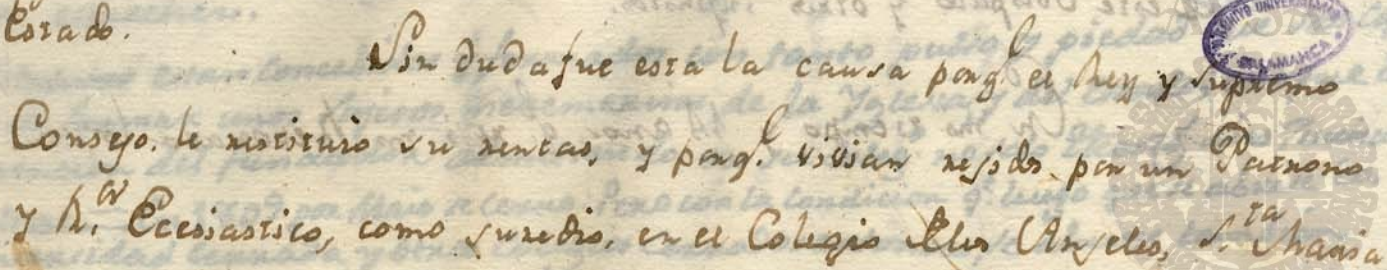 Estado.
Sin duda fue esta la causa porq.e el Rey y Supremo
Consejo. le restituio sus rentas, y porq.e vivian rejidos por un Patrono
y R.or Ecclesiastico, como sucedio, en el Colegio de los Anjeles, S.ta Maria
ARCHIVO UNIVERSITARIO
SALAMANCA